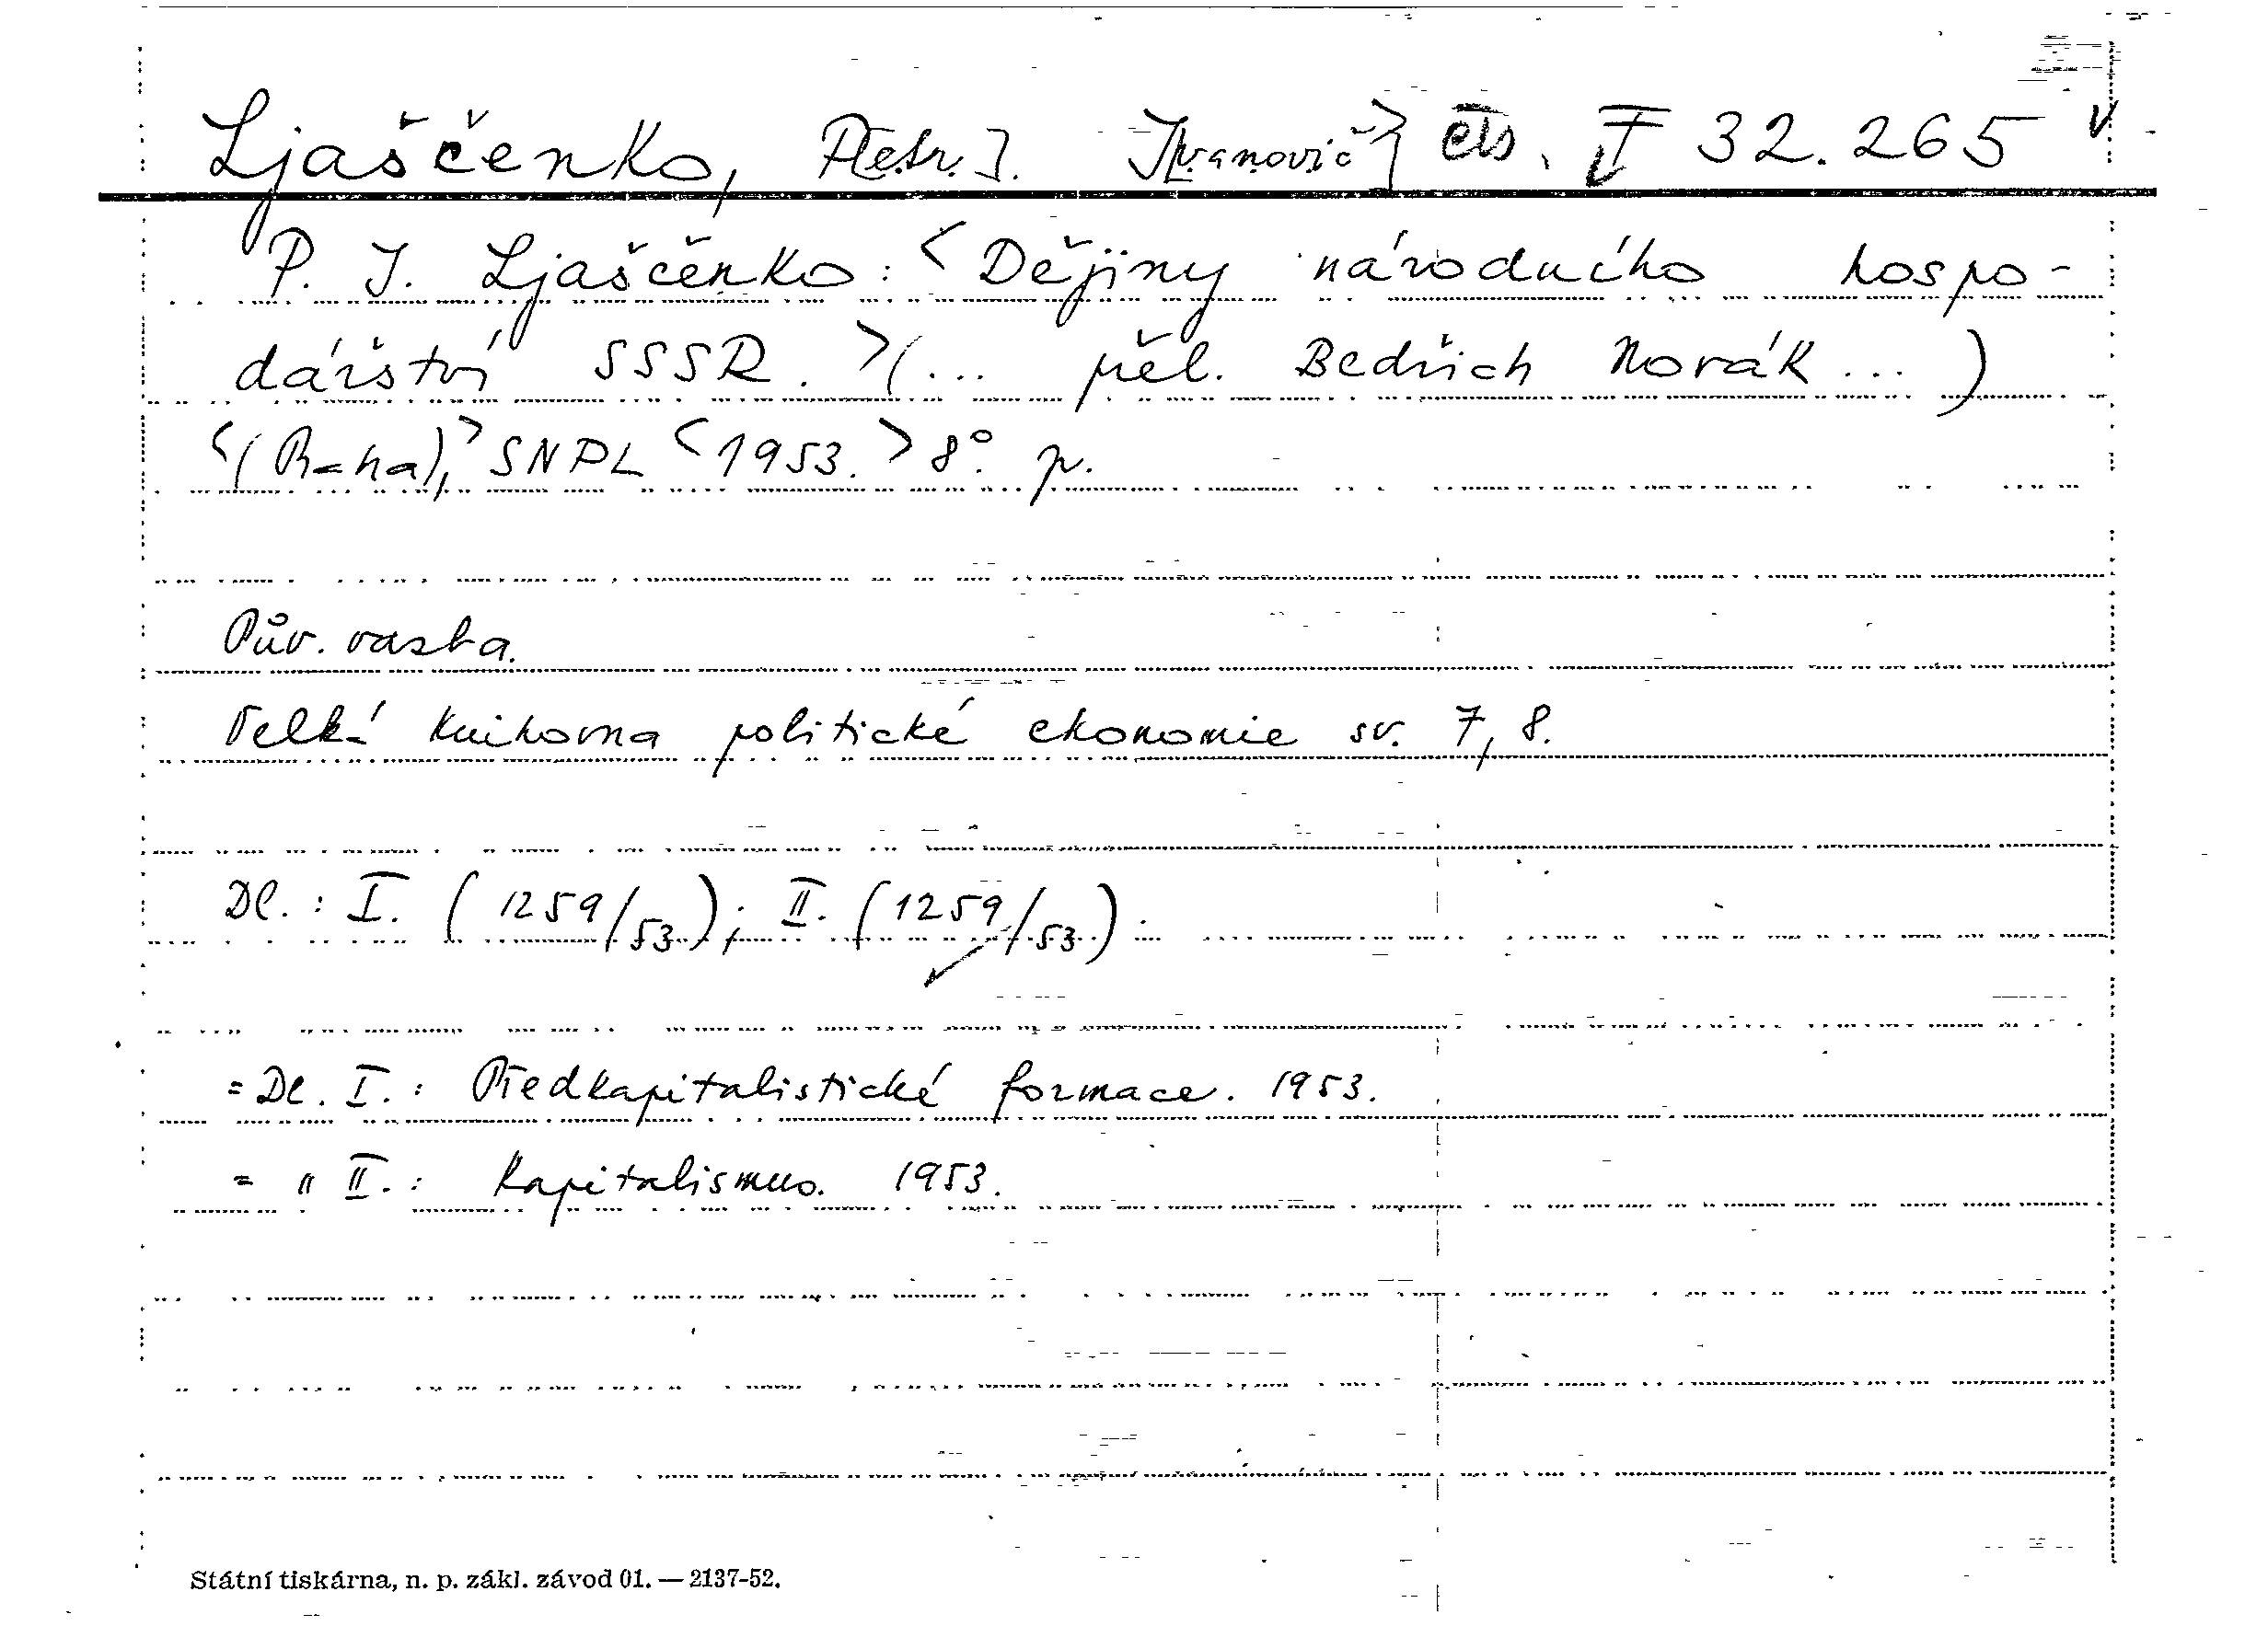 Ljaščenko, Petr J. Ivanovič> I 32.265
P. J. Ljaščenko: <Dějiny národního hospo-
dářství SSSR.>(... přel. Bedřich Novák ...)
<(Praha),> SNPL <1953.> 8°. p.
Pův. vazba.
Velká knihovna politické ekonomie sv. 7, 8.
Dl.: I. (1259/53); II. (1259/53).
= Dl. I.: Předkapitalistické formace. 1953.
= " II.: Kapitalismus. 1953.
Státní tiskárna, n. p. zákl. závod 01. — 2137-52.